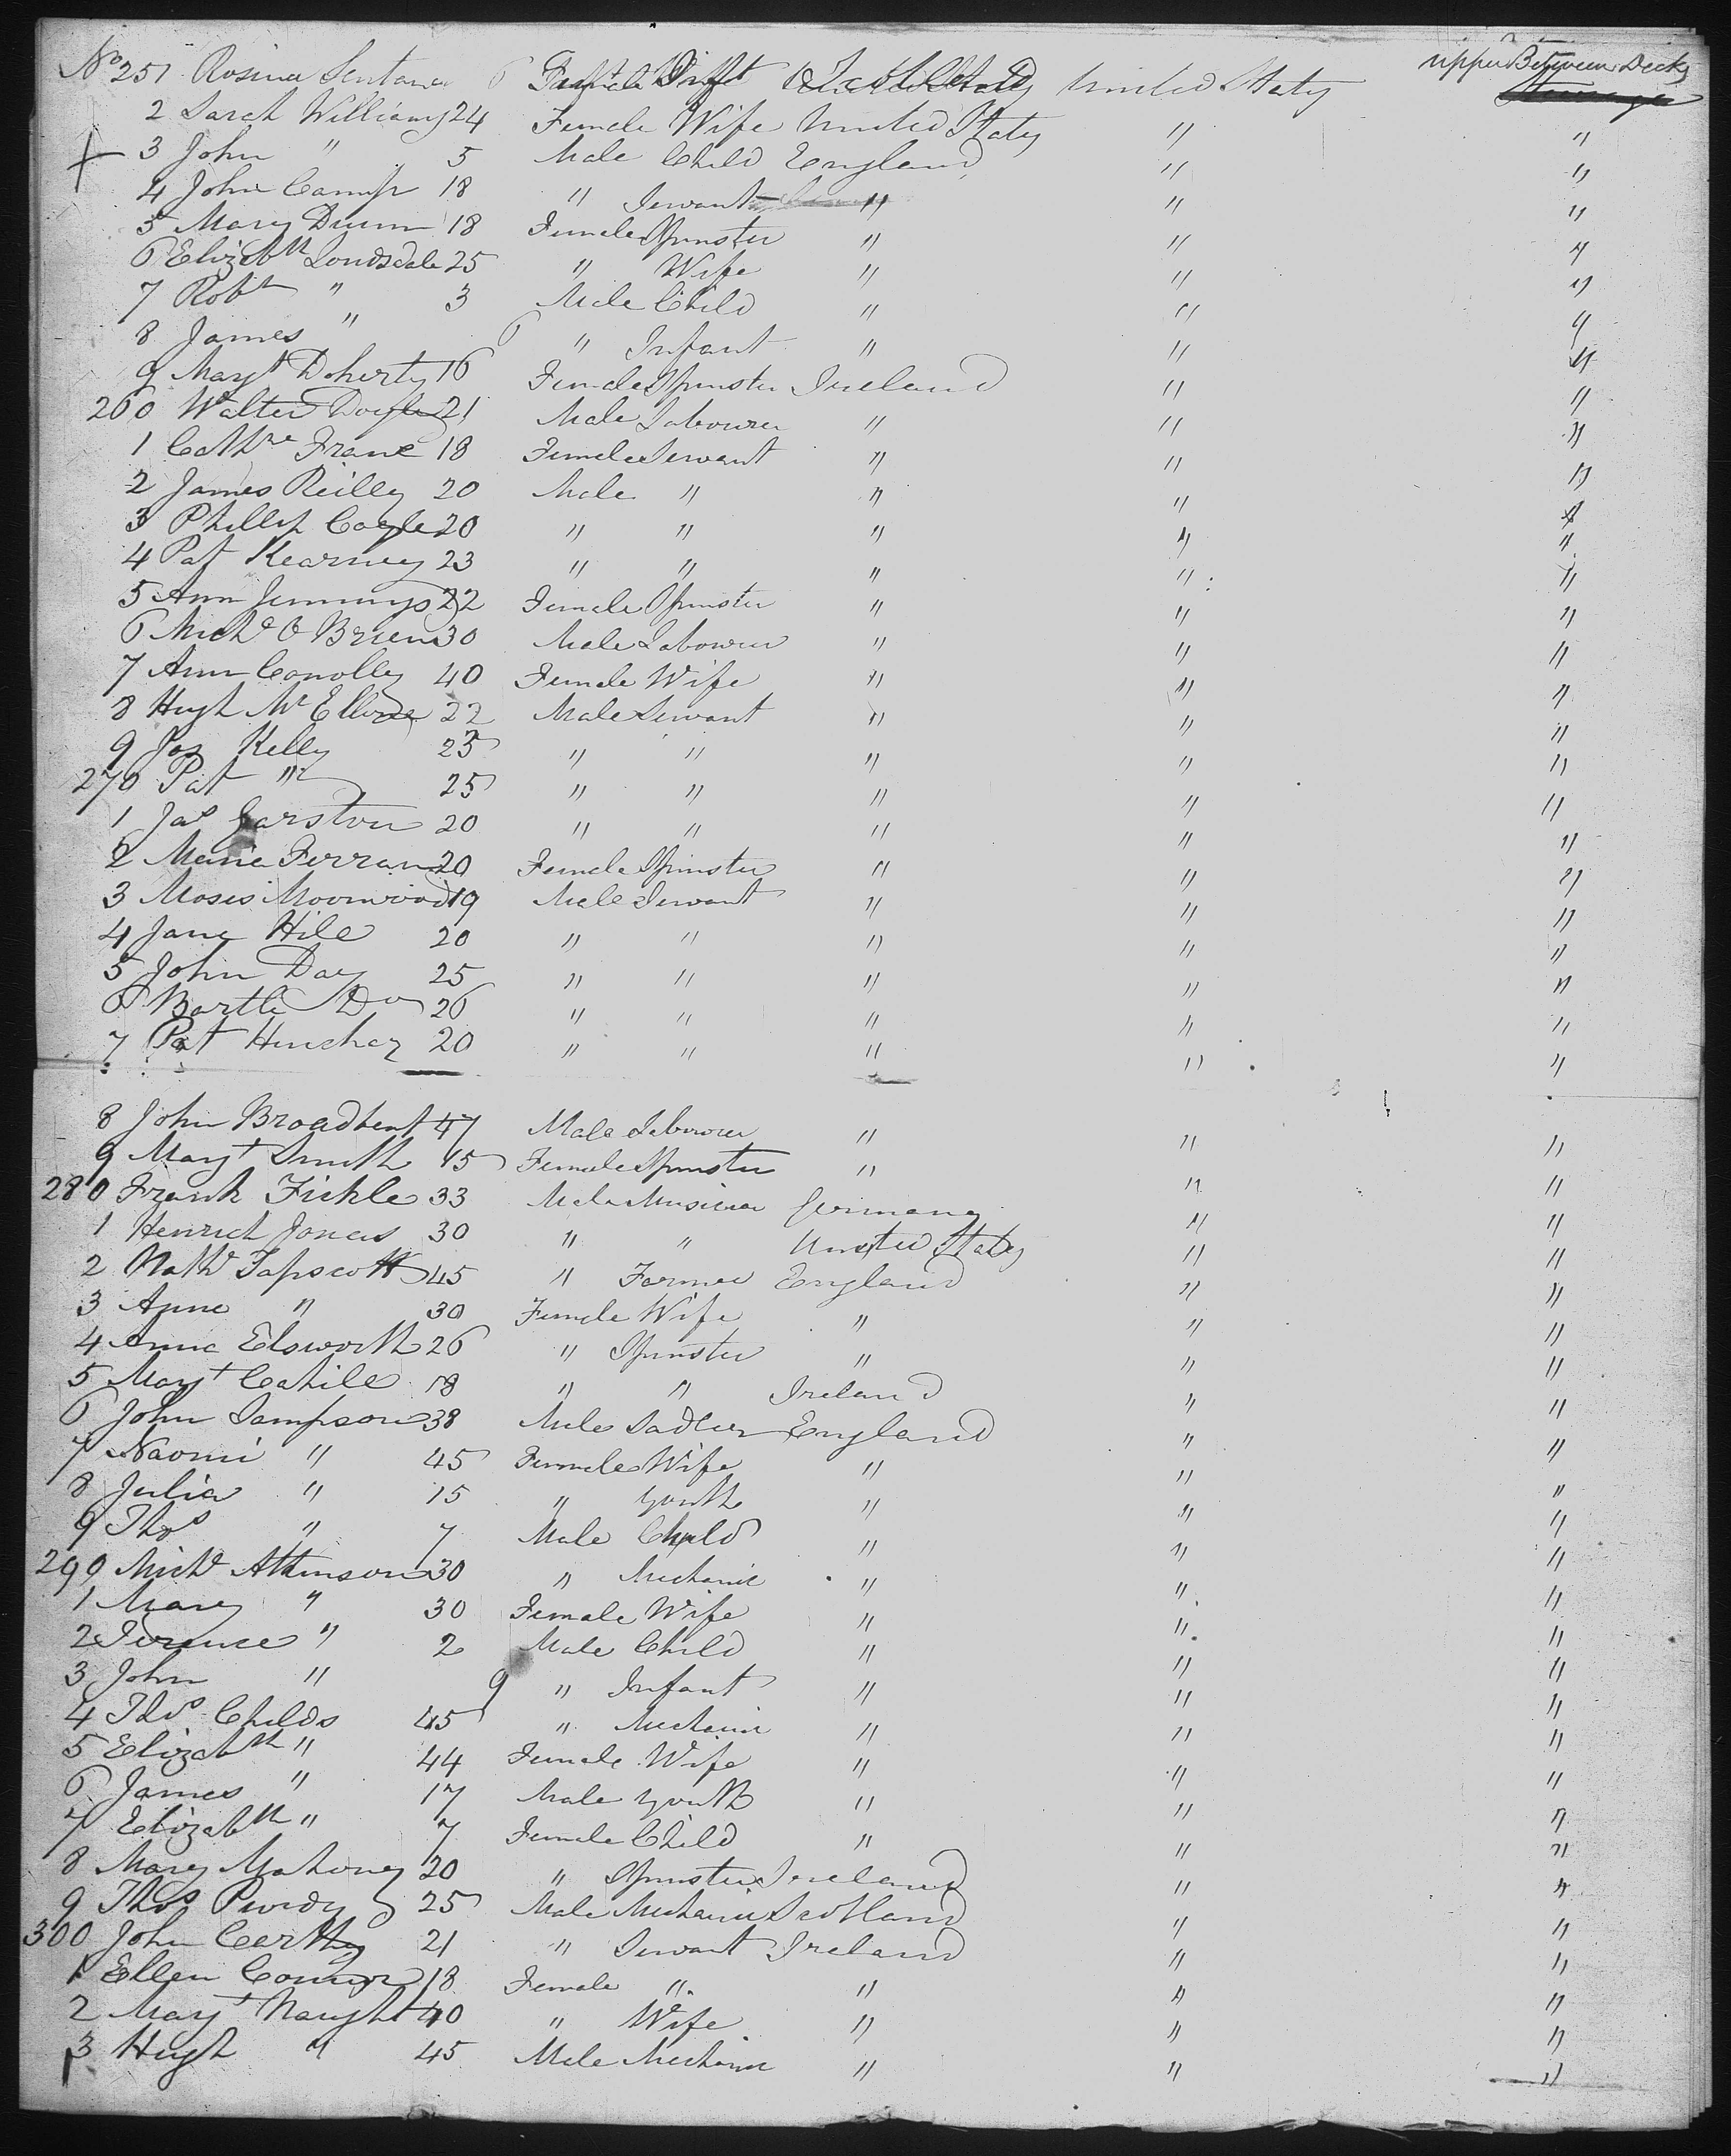 upper Between Decks
No 251 Rosina 6 Female United States
2 Sarah Williams 24 Female Wife United States " "
3 John " 5 Male Child England " "
4 John Camp 18 " Servant " " "
5 Mary Dunn 18 Female Spinster " " "
6 Elizabth Londsdale 25 " Wife " " "
7 Robt " 3 Male Child " " "
8 James " 6 " Infant " " "
9 Mart Doherty 16 Female Spinster Ireland " "
260 Walter Doyle 21 Male Labourer " " "
1 Cathne Frane 18 Female Servant " " "
2 James Reilly 20 Male " " " "
3 Phillip Coyle 20 " " " " "
4 Pat Kearney 23 " " " " "
5 Ann Jennings 22 Female Spinster " " "
6 Michl O Brien 30 Male Labourer " " "
7 Ann Conolly 40 Female Wife " " "
8 Hugh Mc 22 Male Servant " " "
9 Jos Kelly 25 " " " " "
270 Pat " 25 " " " " "
1 Jas Garston 20 " " " " "
2 Maria Ferran 20 Female Spinster " " "
3 Moses Moorwood 19 Male Servant " " "
4 Jane Hile 20 " " " " "
5 John Day 25 " " " " "
6 Bartle Do 26 " " " " "
7 Pat 20 " " " " "
8 John Broadbent 47 Male Labourer " " "
9 Mart Smith 15 Female Spinster " " "
280 Frank Fickle 33 Male Musician Germany " "
1 Henrich Jonas 30 " " United States " "
2 Nathl Tapscott 45 " Farmer England " "
3 Anne " 30 Female Wife " " "
4 Anne Elsworth 26 " Spinster " " "
5 Mart Cahile 18 " " Ireland " "
6 John Sampson 38 Male Sadler England " "
7 Naomi " 45 Female Wife " " "
8 Julia " 15 " Youth " " "
9 Thos " 7 Male Child " " "
290 Michl Atkinson 30 " Mechanic " " "
1 Mary " 30 Female Wife " " "
2 Terence " 2 Male Child " " "
3 John " 9 " Infant " " "
4 Thos Childs 45 " Mechanic " " "
5 Elizabth " 44 Female Wife " " "
6 James " 17 Male Youth " " "
7 Elizabth " 7 Female Child " " "
8 Mary Mahoney 20 " Spinster Ireland " "
9 Thos Purdy 25 Male Mechanic Scotland " "
300 John Carthy 21 " Servant Ireland " "
1 Ellen Connor 18 Female " " " "
2 Mart Naught 40 " Wife " " "
3 Hugh " 45 Male Mechanic " " "